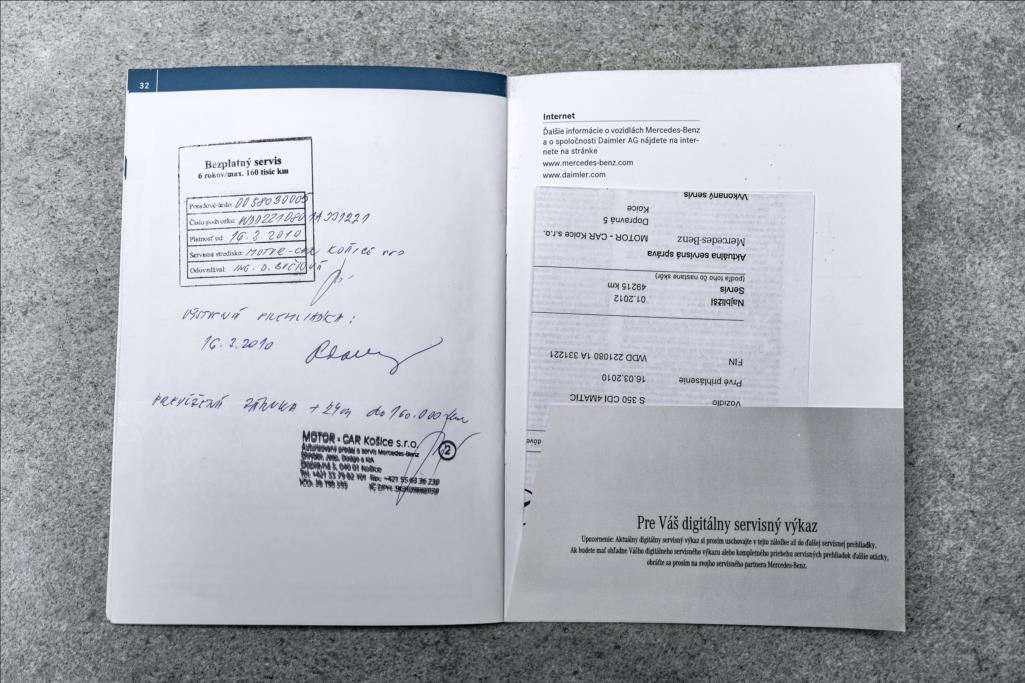 32
Bezplatný servis
6 rokov/max. 160 tisíc km
Poradové číslo: 0058030005
Číslo podvozku: WDD2210801A331221
Platnosť od: 16.3.2010
Servisné stredisko: MOTOR-CAR KOŠICE sro
Odovzdával: ING. D.
VÝSTUPNÁ PREHLIADKA:
16.3.2010
PREDĹŽENÁ ZÁRUKA + 24m do 160.000 km
MOTOR - CAR Košice s.r.o.
Autorizovaný predaj a servis Mercedes-Benz
Dopravná 5, 040 01 Košice
2
Internet
Ďalšie informácie o vozidlách Mercedes-Benz
a o spoločnosti Daimler AG nájdete na inter-
nete na stránke
www.mercedes-benz.com
www.daimler.com
Vozidlo S 350 CDI 4MATIC
Prvé prihlásenie 16.03.2010
FIN WDD 221080 1A 331221
Najbližší 01.2012
Servis 49215 km
(podľa toho čo nastane skôr)
Aktuálna servisná správa
Mercedes-Benz MOTOR - CAR Kolce s.r.o.
Dopravná 5
Kolce
Vykonaný servis
Pre Váš digitálny servisný výkaz
Upozornenie: Aktuálny digitálny servisný výkaz si prosím uschovajte v tejto záložke až do ďalšej servisnej prehliadky.
Ak budete mať ohľadne Vášho digitálneho servisného výkazu alebo kompletného priebehu servisných prehliadok ďalšie otázky,
obráťte sa prosím na svojho servisného partnera Mercedes-Benz.